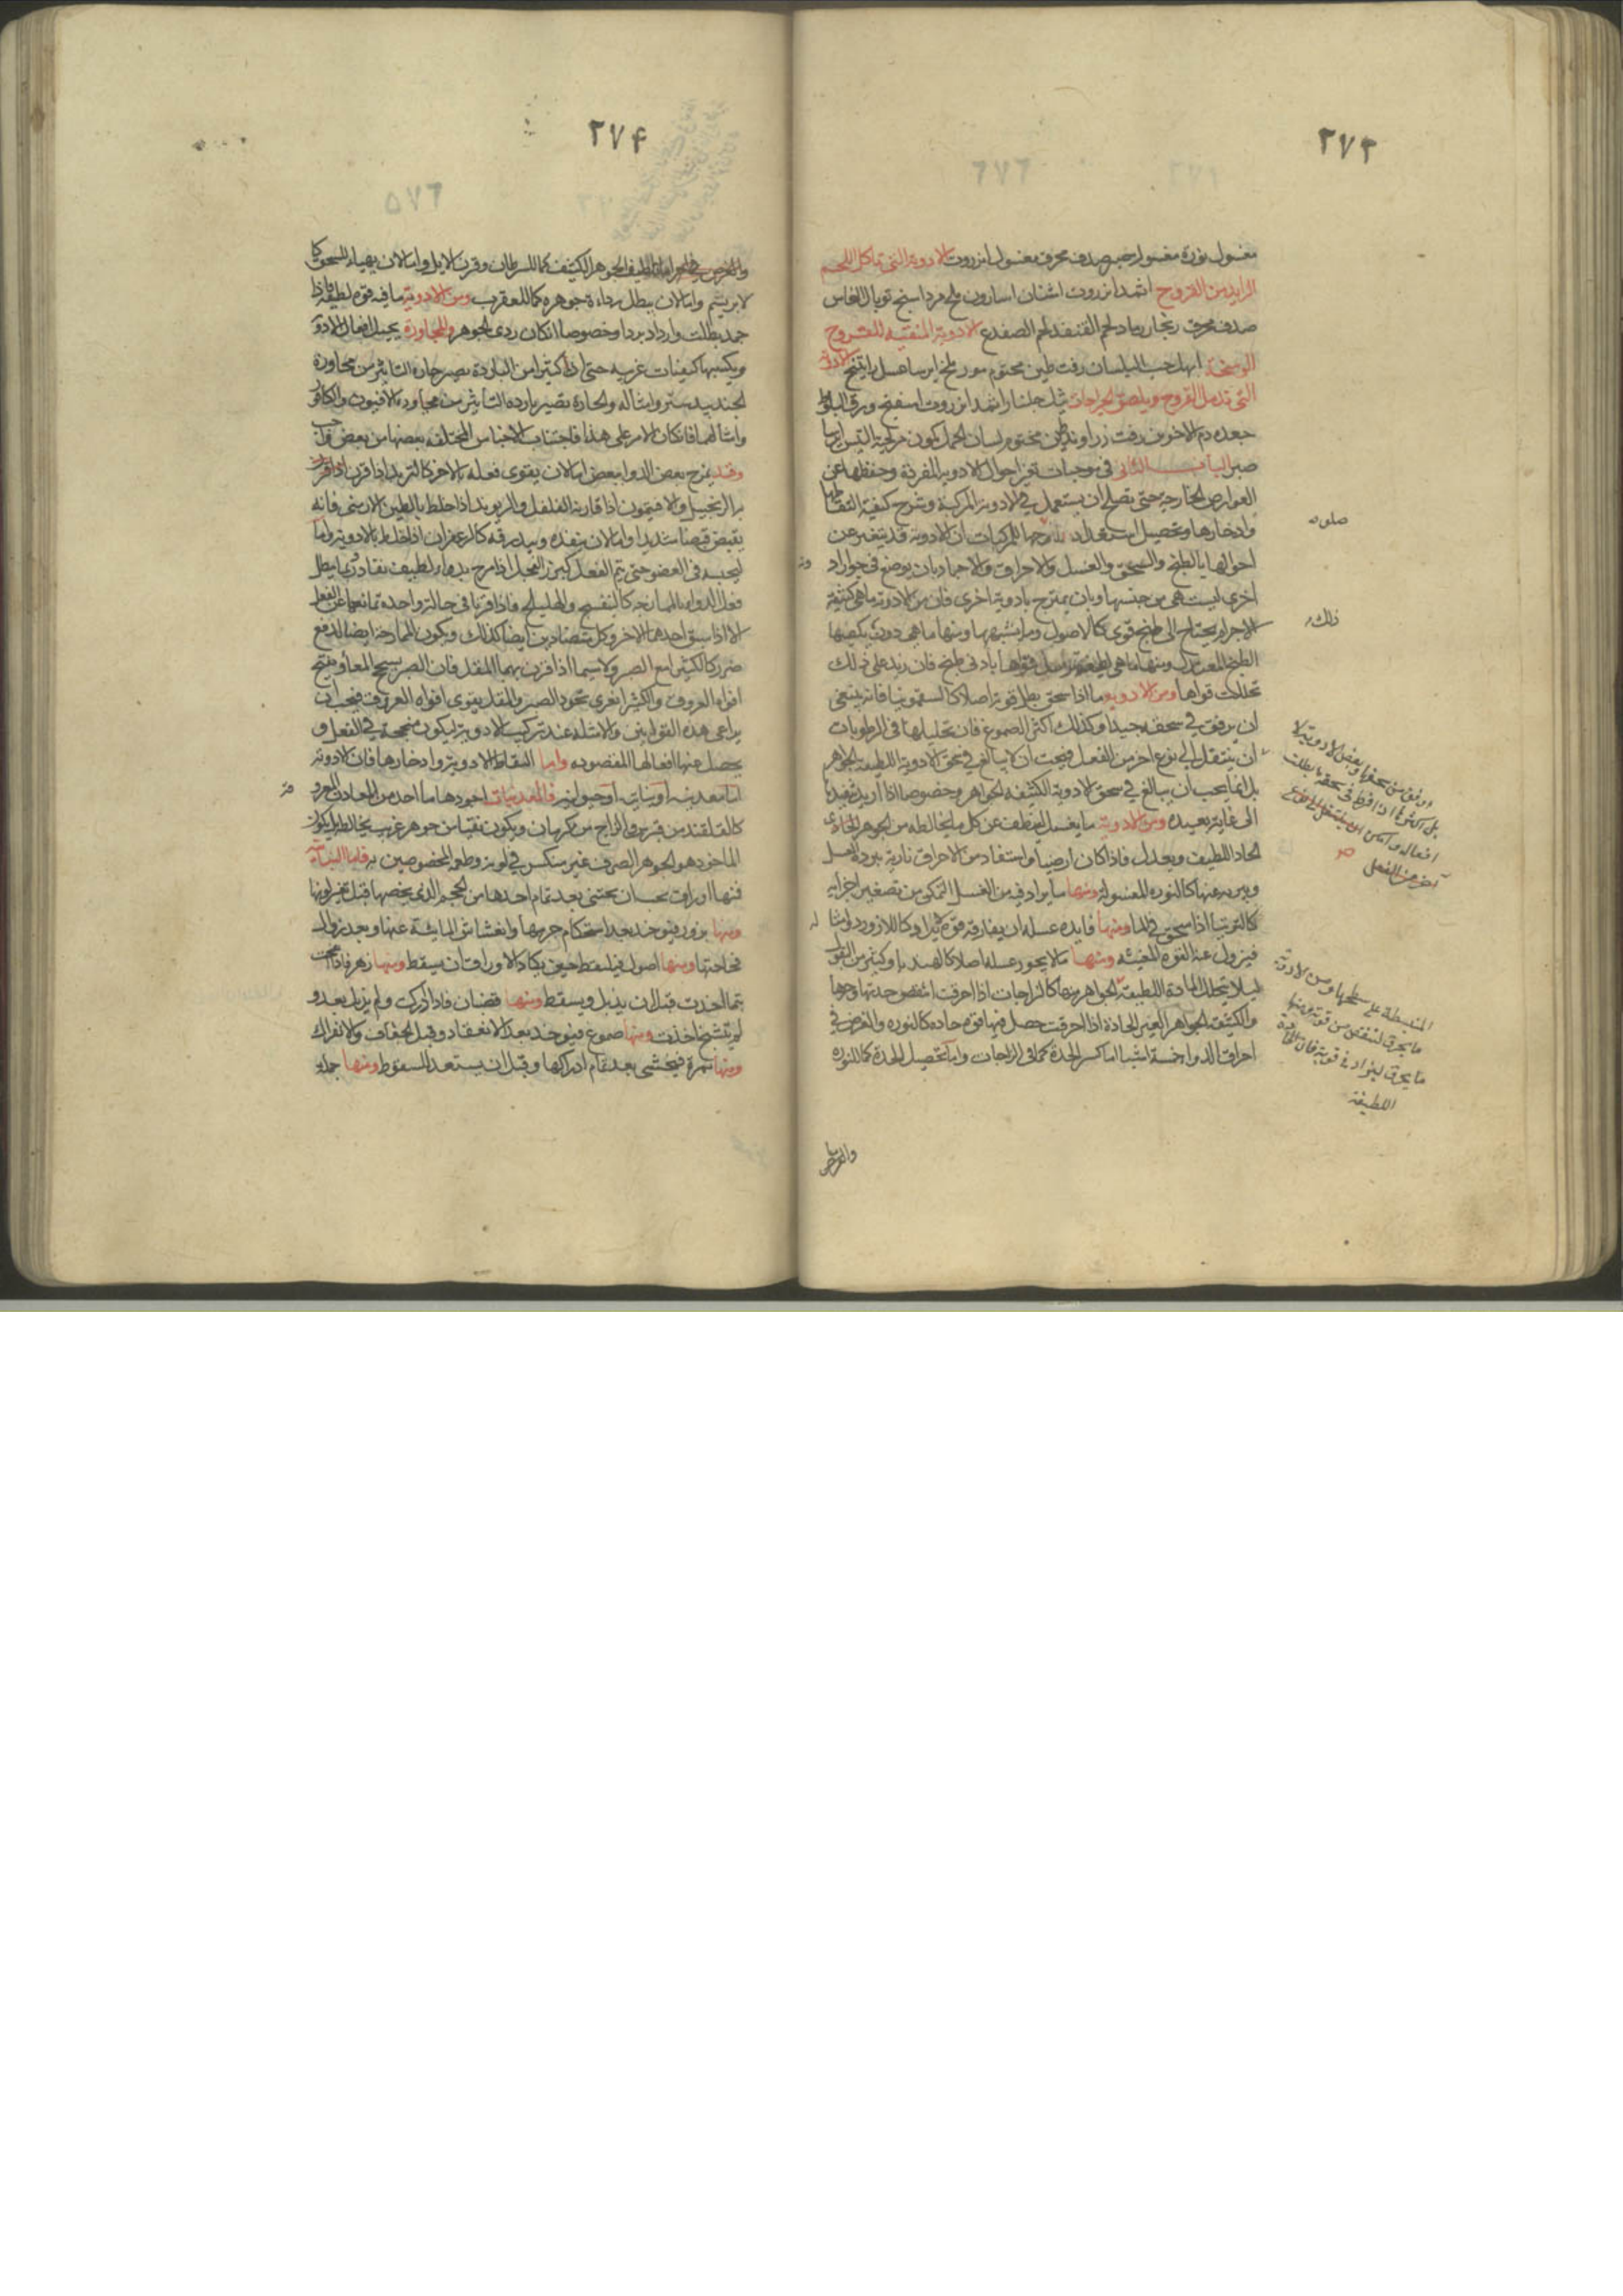 ٢٧٣
مغسول نورة مغسولة جبسين صدف محرق مغسول انزروت الادوية التى تاكل اللحم
الزايد من القروح اثمد انزروت اشنان اسارون ملح مرداسنج توبال النحاس
صدف محرق زنجار رماد لحم القنفذ لحم الضفدع الادوية المنقية للقروح
الوسخة ابهل حب البلسان زفت طين مختوم مورد ملح ايرسا عسل راتينج الادوية
التى تدمل القروح ويلصق الجراحات شل جلنار اثمد انزروت اسفنج ورق البلوط
جعده دم الاخوين زفت زراوند طين مختوم لسان الحمل كمون مر لحية التيس ايرسا
صبر الباب الثانى فى موجبات تغير احوال الادوية المفردة وحفظها عن
العوارض الخارجية حتى تصلح ان يستعمل فى الادوية المركبة وشرح كيفية التقاطها
وادخارها وتحصيل ان الادوية قد يتغير عن
احوالها بالطبخ والسحق والغسل والاحراق والاجماد بان يوضع فى جوار ادوية
اخرى ليست هى من جنسها وبان يمتزج بادوية اخرى فان من الادوية ما هى كثيفة
الاجرام يحتاج الى طبخ قوى كالاصول وما يشبهها ومنها ما هى دون يكفيها
الطبخ المعتدل ومنها ما هى لطيفة قواها بادنى طبخ فان زيد على ذلك
تحللت قواها ومن الادوية ما اذا سحق بطل قوته اصلا كالسقمونيا فانه ينبغى
ان يرفق فى سحقه جيدا وكذلك اكثر الصموغ فان تحليلها فى الرطوبات
ان ينتقل الى نوع اخر من الفعل فيجب ان لا يبالغ فى سحق الادوية اللطيفة الجواهر
بل انما يجب ان يبالغ فى سحق الادوية الكثيفة الجواهر وخصوصا اذا اريد تنفيذها
الى غاية بعيدة ومن الادوية ما يغسل لينظف عن كل ما يخالطه من الجوهر الحار
الحاد اللطيف ويعدل فاذا كان ارضيا واستفاد من الاحراق نارية يبرده الغسل
ويبريه عنها كالنورة المغسولة ومنها ما يراد فيه من الغسل التمكن من تصغير اجزايه
كالتوتيا اذا سحق فى الماء ومنها فايده غسله ان يفارقه قوة كاللازورد وامثاله
فيزول عنه القوة المغثيه ومنها ما لا يجوز غسله اصلا كالهندبا وكثير من البقول
ليلا يتحلل المادة اللطيفة الجواهر منها كالزاجات اذا احرقت انتقص حدتها وحرها
والكثيفة الجواهر الغير الحادة اذا احرقت حصل فيها قوة حادة كالنورة والغرض فى
احراق الدوا خمسة اشيا اما كسر الحدة كما فى الزاجات واما تحصيل الحدة كما للنورة
والغرض
صلوه
ذلك
او فى من سحقها وبعض الادوية لا
بل اكثرها اذا افرط فى سحقه بطلت
افعاله وامكن ان ينتقل الى نوع
آخر من الفعل صح
المنبسطة على سطحها ومن الادوية
ما يحرق لينقص من قوته ومنها
ما يحرق ليزاد فى قوته فان الحادة
اللطيفة
٢٧۴
الجوهر الكثيف كما للسرطان وقرن الايل واما لان يهياء للسحق كالابريسم
واما لان يبطل رداءة جوهره كما للعقرب ومن الادوية ما فيه قوة لطيفة فاذا
جمد بطلت وازداد بردا وخصوصا ان كان ردى الجوهر والمجاورة يحيل افعال الادوية
ويكسبها كيفيات غريبه حتى ان كثيرا من الباردة يصير حارة التاثير من مجاورة
الجندبيدستر وامثاله والحارة تصير باردة التاثير من مجاورة الافيون والكافور
وامثالهما فان كان الامر على هذا فاجتناب الاجناس المختلفة بعضها من بعض واجب
وقد يمزج بعض الدوا ببعض اما لان يقوى فعله بالاخر كالتربد اذا قرن
بالزنجبيل والافتيمون اذا قارنه الفلفل والريوند اذا خلط بالطين الارمنى فانه
يقبض قبضا شديدا واما لان ينفذه ويبدرقه كالزعفران اذا خلط بالادوية واما
ليحبسه فى العضو حتى يتم الفعل كبزر الفجل اذا مزج بدواء لطيف نفاد ربما يبطل
فعل الدوا بالممازجة كالبنفسج والهليلج فاذا قرنا فى حالة واحدة تمانعا عن الفعل
الا اذا سبق احدهما الاخر وكل متضادين ايضا كذلك ويكون الممازجة ايضا لدفع
ضرر كالكثيرا مع الصبر ولا سيما اذا قرن بهما المقل فان الصبر يسحج المعاء ويفتح
افواه العروق والكثيرا تغرى تجود الصبر والمقل يقوى افواه العروق فيجب ان
يراعى هذه القوانين والامثلة عند تركيب الادوية ليكون منجحة فى الفعل و
يحصل منها افعالها المقصوده واما التقاط الادوية وادخارها فان الادوية
اما معدنية او نباتية او حيوانية فالمعدنيات اجودها ما اخذ من المعادن المعروفة
كالقلقند من قبرص والزاج من كرمان ويكون نقيا من جوهر غريب يخالطه بل يكون
الماخوذ هو الجوهر الصرف غير منكسر فى لونه وطعمه المخصوصين به واما النباتية
فمنها اوراق يجب ان يجتنى بعد تمام اخذها من الحجم الذى يخصها قبل تغير لونها
ومنها بزور فيوخذ بعد استحكام جرمها وانغشاش المائية عنها وبعد زوال
فجاجتها ومنها اصول حين يكاد الاوراق ان يسقط ومنها زهر
يتم اخذت قبل ان يذبل ويسقط ومنها قضبان فاذا ادركت ولم يذبل بعد و
لم تتشنج اخذت ومنها صموغ فيوخذ بعد الانعقاد وقبل الجفاف والانفراك
ومنها ثمرة فيجتنى بعد تمام ادراكها وقبل ان يستعد للسقوط ومنها جملة